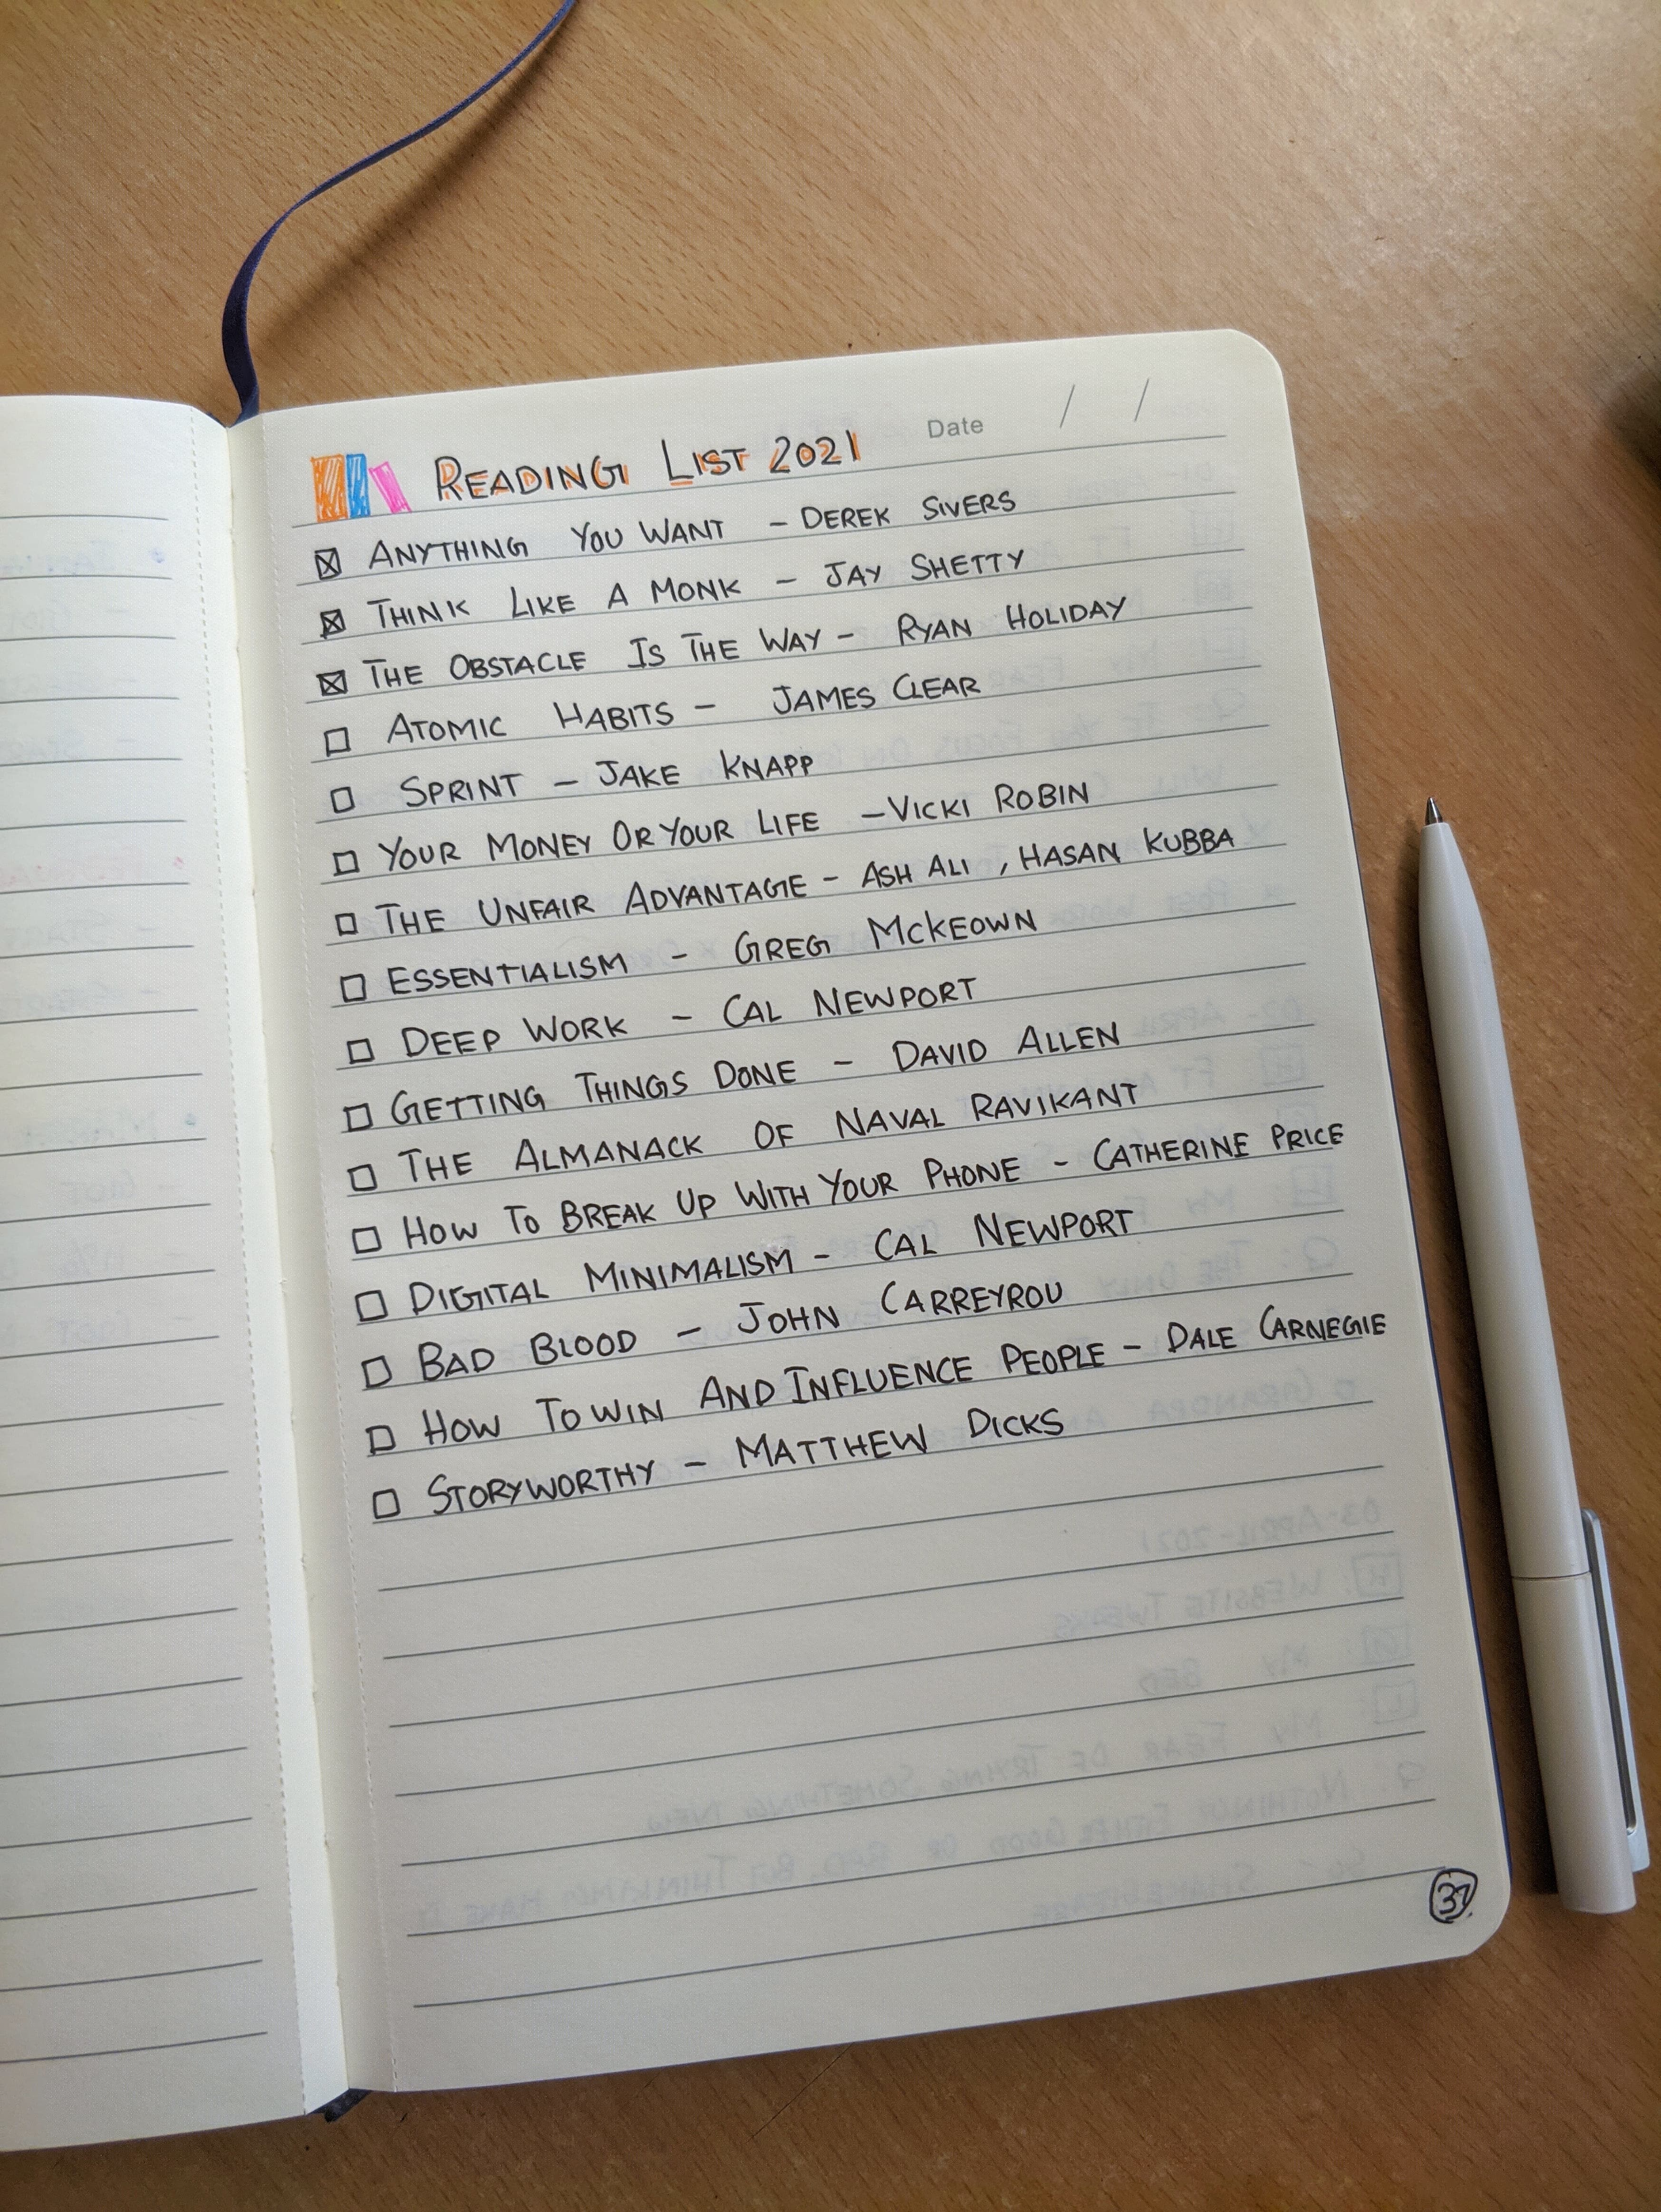 Date / /
READING LIST 2021
☒ ANYTHING YOU WANT - DEREK SIVERS
☒ THINK LIKE A MONK - JAY SHETTY
☒ THE OBSTACLE IS THE WAY - RYAN HOLIDAY
☐ ATOMIC HABITS - JAMES CLEAR
☐ SPRINT - JAKE KNAPP
☐ YOUR MONEY OR YOUR LIFE - VICKI ROBIN
☐ THE UNFAIR ADVANTAGE - ASH ALI , HASAN KUBBA
☐ ESSENTIALISM - GREG MCKEOWN
☐ DEEP WORK - CAL NEWPORT
☐ GETTING THINGS DONE - DAVID ALLEN
☐ THE ALMANACK OF NAVAL RAVIKANT
☐ HOW TO BREAK UP WITH YOUR PHONE - CATHERINE PRICE
☐ DIGITAL MINIMALISM - CAL NEWPORT
☐ BAD BLOOD - JOHN CARREYROU
☐ HOW TO WIN AND INFLUENCE PEOPLE - DALE CARNEGIE
☐ STORYWORTHY - MATTHEW DICKS
37